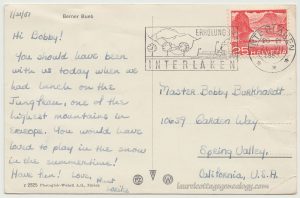 Berner Bueb
1/20/51
Hi Bobby!
You should have been
with us today when we
had lunch on the
Jungfrau, one of the
highest mountains in
Europe. You would have
loved to play in the snow
in the summertime!
Have fun! Love, Aunt
INTERLAKEN
25
HELVETIA
INTERLAKEN
Master Bobby Burkhardt
10659 Garden Way
Spring Valley,
California, U.S.A.
laurelcottagegenealogy.com